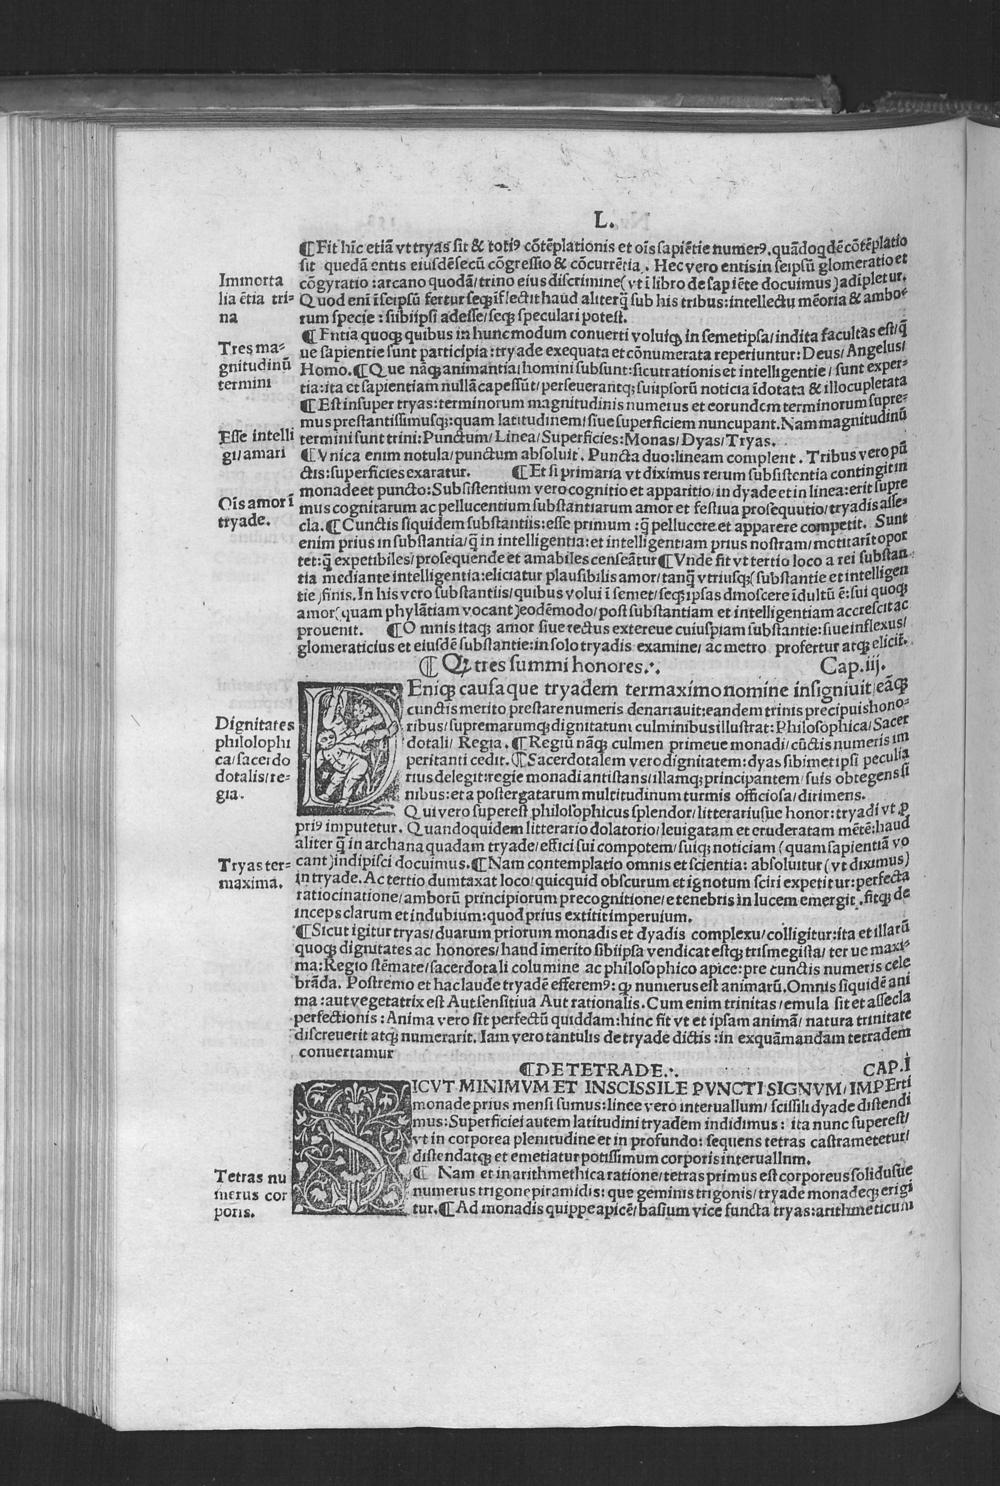 L.
¶Fit hīc etiā vt tryas sit & toti⁹ cōtēplationis et oīs sapiētie numer⁹. quādoq dē cōtēplatio
sit quedā entis eiusdē secū cōgressio & cōcurrētia. Hec vero entis in seipsū glomeratio et
cōgyratio: arcano quodā/ trino eius discrimine (vt ī libro de sapiēte docuimus) adipletur.
Quod enī ī seipsū fertur seqꝫ īflectit haud aliterq̄ sub his tribus: intellectu mēoria & ambo⸗
rum specie: sibiipsi adesse/ seqꝫ speculari potest.
Immorta
lia ētia tri⸗
na
¶Entia quoqꝫ quibus in hunc modum converti voluiqꝫ in semetipsa/ indita facultas est/ q̄
ue sapientie sunt participia: tryade exequata et cōnumerata reperiuntur: Deus/ Angelus/
Homo. ¶Que nāqꝫ animantia/ homini subsunt: sicut rationis et intelligentie/ sunt exper⸗
tia: ita et sapientiam nullā capessūt/ perseverantqꝫ sui ipsorū noticia īdotata & illocupletata
Tres ma⸗
gnitudinū
termini
¶Est insuper tryas: terminorum magnitudinis numerus et eorundem terminorum supre⸗
mus prestantissimusqꝫ: quam latitudinem/ siue superficiem nuncupant. Nam magnitudinū
termini sunt trini: Punctum/ Linea/ Superficies: Monas/ Dyas/ Tryas.
¶Vnica enim notula/ punctum absoluit. Puncta duo: lineam complent. Tribus vero pū
ctis: superficies exaratur. ¶Et si primaria vt diximus rerum subsistentia contingit in
Esse intelli
gi/ amari
monade et puncto: Subsistentium vero cognitio et apparitio/ in dyade et in linea: erit supre
mus cognitarum ac pellucentium substantiarum amor et festiua prosequutio/ tryadis asse⸗
cla. ¶Cunctis siquidem substantiis: esse primum: q̄ pellucere et apparere competit. Sunt
enim prius in substantia/ q̄ in intelligentia: et intelligentiam prius nostram/ motitarīt opor
Oīs amor ī
tryade.
tet: q̄ expetibiles/ prosequende et amabiles censeātur ¶Vnde fit vt tertio loco a rei substan
tia mediante intelligentia: eliciatur plausibilis amor/ tanq̄ vtriusqꝫ (substantie et intelligen
tie) finis. In his vero substantiis/ quibus volui ī semet/ seqꝫ ipsas dinoscere īdultū ē: sui quoqꝫ
amor (quam phylātiam vocant) eodē modo/ post substantiam et intelligentiam accrescit ac
provenit. ¶Omnis itaqꝫ amor siue rectus extereue cuiuspiam substantie: siue inflexus/
glomeraticius et eiusdē substantie: in solo tryadis examine/ ac metro profertur atqꝫ elicit̄.
¶ Qꝫ tres summi honores. Cap.iij.
DEniqꝫ causa que tryadem termaximo nomine insigniuit/ eāqꝫ
cunctis merito prestare numeris denariauit: eandem trinis precipuis hono⸗
ribus/ supremarumqꝫ dignitatum culminibus illustrat: Philosophica/ Sacer
dotali/ Regia. ¶Regiū nāqꝫ culmen primeue monadi/ cūctis numeris im
peritanti cedit. ¶Sacerdotalem vero dignitatem: dyas sibimetipsi peculia
rius delegit: regie monadi antistans/ illamqꝫ principantem/ suis obtegens si
nibus: et a postergatarum multitudinum turmis officiosa/ dirimens.
Dignitates
philolophi
ca/ sacerdo
dotalis/ re⸗
gia.
Qui vero superest philosophicus splendor/ litterariusue honor: tryadi vt ꝓ
pri⁹ imputetur. Quandoquidem litterario dolatorio/ leuigatam et eruderatam mētē: haud
aliter q̄ in archana quadam tryade/ effici sui compotem/ suiqꝫ noticiam (quam sapientiā vo
cant) indipisci docuimus. ¶Nam contemplatio omnis et scientia: absoluitur (vt diximus)
in tryade. Ac tertio dumtaxat loco/ quicquid obscurum et ignotum sciri expetitur: perfecta
ratiocinatione/ amborū principiorum precognitione/ e tenebris in lucem emergit. fitqꝫ de
inceps clarum et indubium: quod prius extitit imperuium.
Tryas ter⸗
maxima.
¶Sicut igitur tryas/ duarum priorum monadis et dyadis complexu/ colligitur: ita et illarū
quoqꝫ dignitates ac honores/ haud īmerito sibiipsa vendicat estqꝫ trismegista/ ter ue maxi⸗
ma: Regio stēmate/ sacerdotali columine ac philosophico apice: pre cunctis numeris cele
brāda. Postremo et hac laude tryadē efferem⁹: qꝫ numerus est animarū. Omnis siquidē ani
ma: aut vegetatrix est Aut sensitiua Aut rationalis. Cum enim trinitas/ emula sit et assecla
perfectionis: Anima vero sit perfectū quiddam: hinc fit vt et ipsam animā/ natura trinitate
discreuerit atqꝫ numerarit. Iam vero tantulis de tryade dictis: in exquāmandam tetradem
convertamur
¶DE TETRADE. CAP.I
SICVT MINIMVM ET INSCISSILE PVNCTI SIGNVM/ IMPErti
monade prius mensi sumus: linee vero interuallum/ scissili dyade distendi
mus: Superficiei autem latitudini tryadem indidimus: ita nunc superest/
vt in corporea plenitudine et in profundo: sequens tetras castrametetur/
distendatqꝫ et emetiatur potissimum corporis interuallum.
¶ Nam et in arithmethica ratione/ tetras primus est corporeus solidusue
numerus trigone piramidis: que geminis trigonis/ tryade monadeqꝫ erigi
tur. ¶Ad monadis quippe apicē/ basium vice functa tryas: arithmeticum
Tetras nu
merus cor
poris.